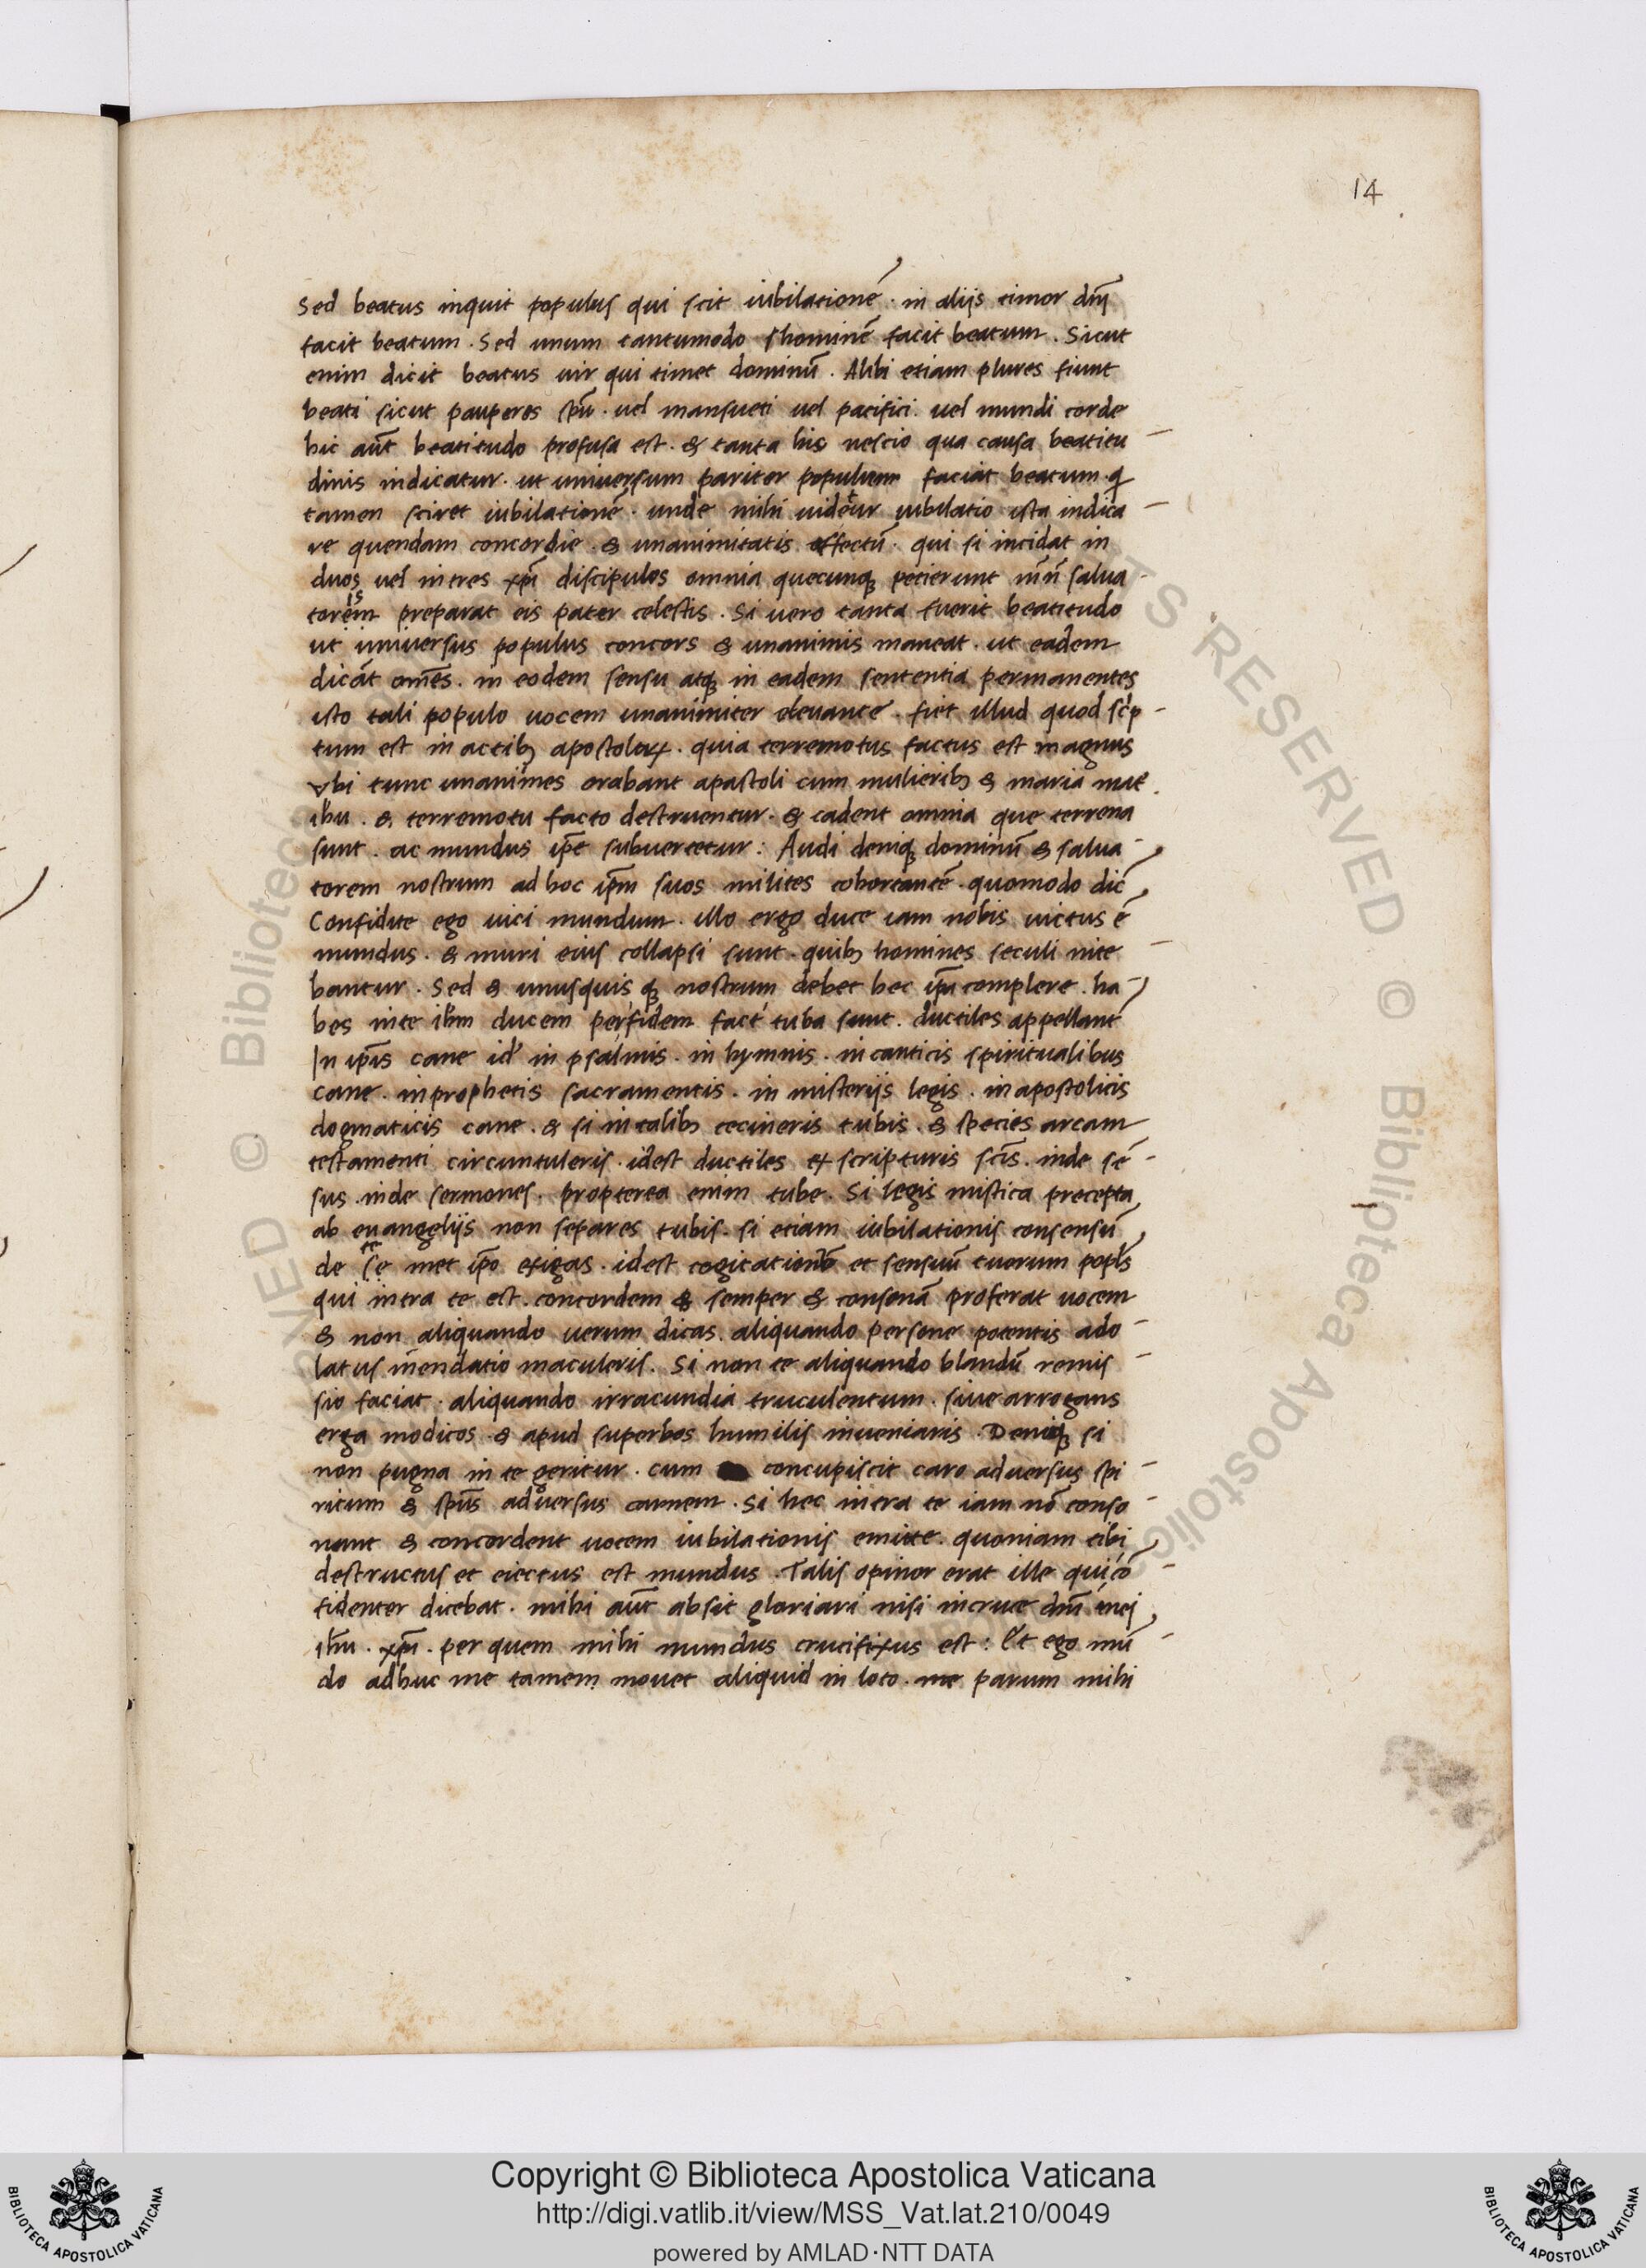 14
Sed beatus inquit populus qui scit iubilationē. in alijs timor dnī
facit beatum. Sed unum tantumodo hominē facit beatum. Sicut
enim dicit beatus uir qui timet dominū. Alibi etiam plures fiunt
beati sicut pauperes spū. uel mansueti uel pacifici. uel mundi corde
hic aūt beatitudo profusa est. & tanta his nescio qua causa beatitu
dinis indicatur. ut universum pariter populum faciat beatum. q
tamen sciret iubilationē. unde mihi uidetur iubilatio ista indica
re quendam concordie. & unanimitatis effectū. qui si incidat in
duos uel in tres xp̄i discipulos omnia quecunqꝫ petierunt salua
torem preparat eis pater celestis. Si vero tanta fuerit beatitudo
ut universus populus concors & unanimis maneat. ut eadem
dicāt om̄es. in eodem sensu atqꝫ in eadem sententia permanentes
isto tali populo uocem unanimiter elevante. fiet illud quod sc͛p
tum est in actibꝫ apostoloꝝ. quia terremotus factus est magnus
vbi tunc unanimes orabant apostoli cum mulieribꝫ & maria mat̄
ihu. & terremotu facto destruentur. & cadent omnia que terrena
sunt. ac mundus ip̄e subvertetur: Audi deniqꝫ dominū & salua
torem nostrum ad hoc ip̄m suos milites cohortantē. quomodo dic̄
Confidite ego uici mundum. illo ergo duce iam nobis uictus ē
mundus. & muri eius collapsi sunt. quibꝫ homines seculi nite
bantur. Sed & unusquisqꝫ nostrum debet hec ip̄a complere. ha
bes in te ihm ducem per fidem fact tuba sunt. ductiles appellant
In ip̄is cane id' in psalmis. in hymnis. in canticis spiritualibus
cane. in prophetis sacramentis. in misterijs legis. in apostolicis
dogmaticis cane. & si in talibꝫ cecineris tubis. & species arcam
testamenti circuntuleris. idest ductiles ex scripturis sc̄is. inde sē
sus. inde sermones. propterea enim tube. Si legis mistica precepta
ab euangelijs non separes tubis. si etiam iubilationis consensū
de te se met ip̄o exigas. idest cogitationū et sensuū tuorum popl's
qui intra te est. concordem & semper & consonā proferat uocem
& non aliquando uerum dicas. aliquando persone potentis ado
latus mendatio maculeris. Si non te aliquando blandū remis
sio faciat. aliquando irracundia truculentum. siue arrogans
erga modicos & apud superbos humilis inueniaris. Deniqꝫ si
non pugna in te geritur. cum concupiscit caro adversus spi
ritum & sp̄us adversus carnem. Si hec intra te iam nō conso
nant & concordent uocem iubilationis emitte. quoniam tibi
destructus et eiectus est mundus. Talis opinor erat ille qui cō
fidenter dicebat. mihi aūt absit gloriari nisi in cruce dnī mei
ihu. xp̄i. per quem mihi mundus crucifixus est: Et ego mū
do adhuc me tamem mouet aliquid in loco. me parum mihi
Copyright © Biblioteca Apostolica Vaticana
http://digi.vatlib.it/view/MSS_Vat.lat.210/0049
powered by AMLAD·NTT DATA
BIBLIOTECA APOSTOLICA VATICANA
BIBLIOTECA APOSTOLICA VATICANA